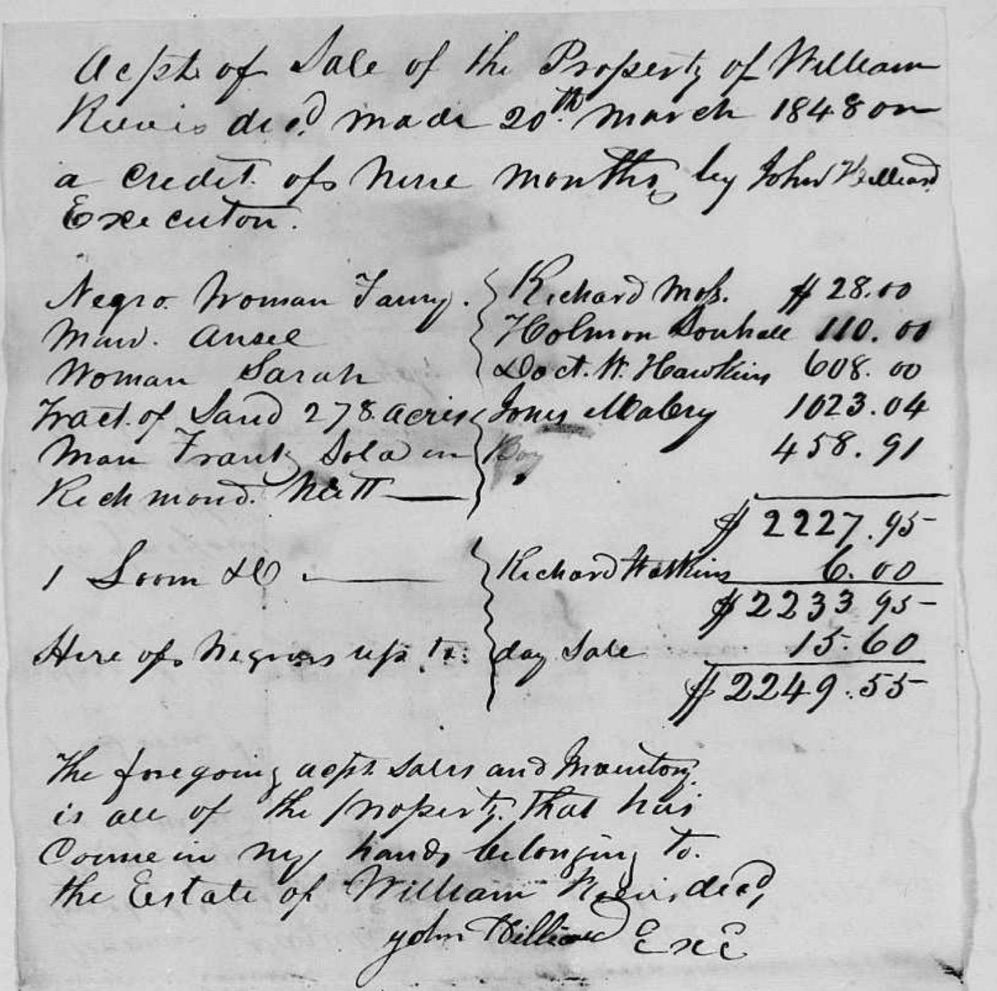 Acpt of Sale of the Property of William
Reavis decd. made 20th March 1848 on
a credit of Nine months by John Hilliard
Executor.
Negro Woman Fanny. Richard Moss. $ 28.00
Man. Ansel Holmon 110.00
Woman Sarah Doct. W. Hawkins 608.00
Tract of Land 278 acres Jones Mabry 1023.04
Man Frank Sold in 458.91
Richmond. Nett
$ 2227.95
1 Loom &C Richard Hawkins 6.00
$ 2233 95
Hire of Negroes up to: day Sale 15.60
$ 2249.55
The foregoing acpt Sales and Inventory
is all of the property that has
Come in my hands belonging to.
the Estate of William Reavis decd,
John Hilliard Exe